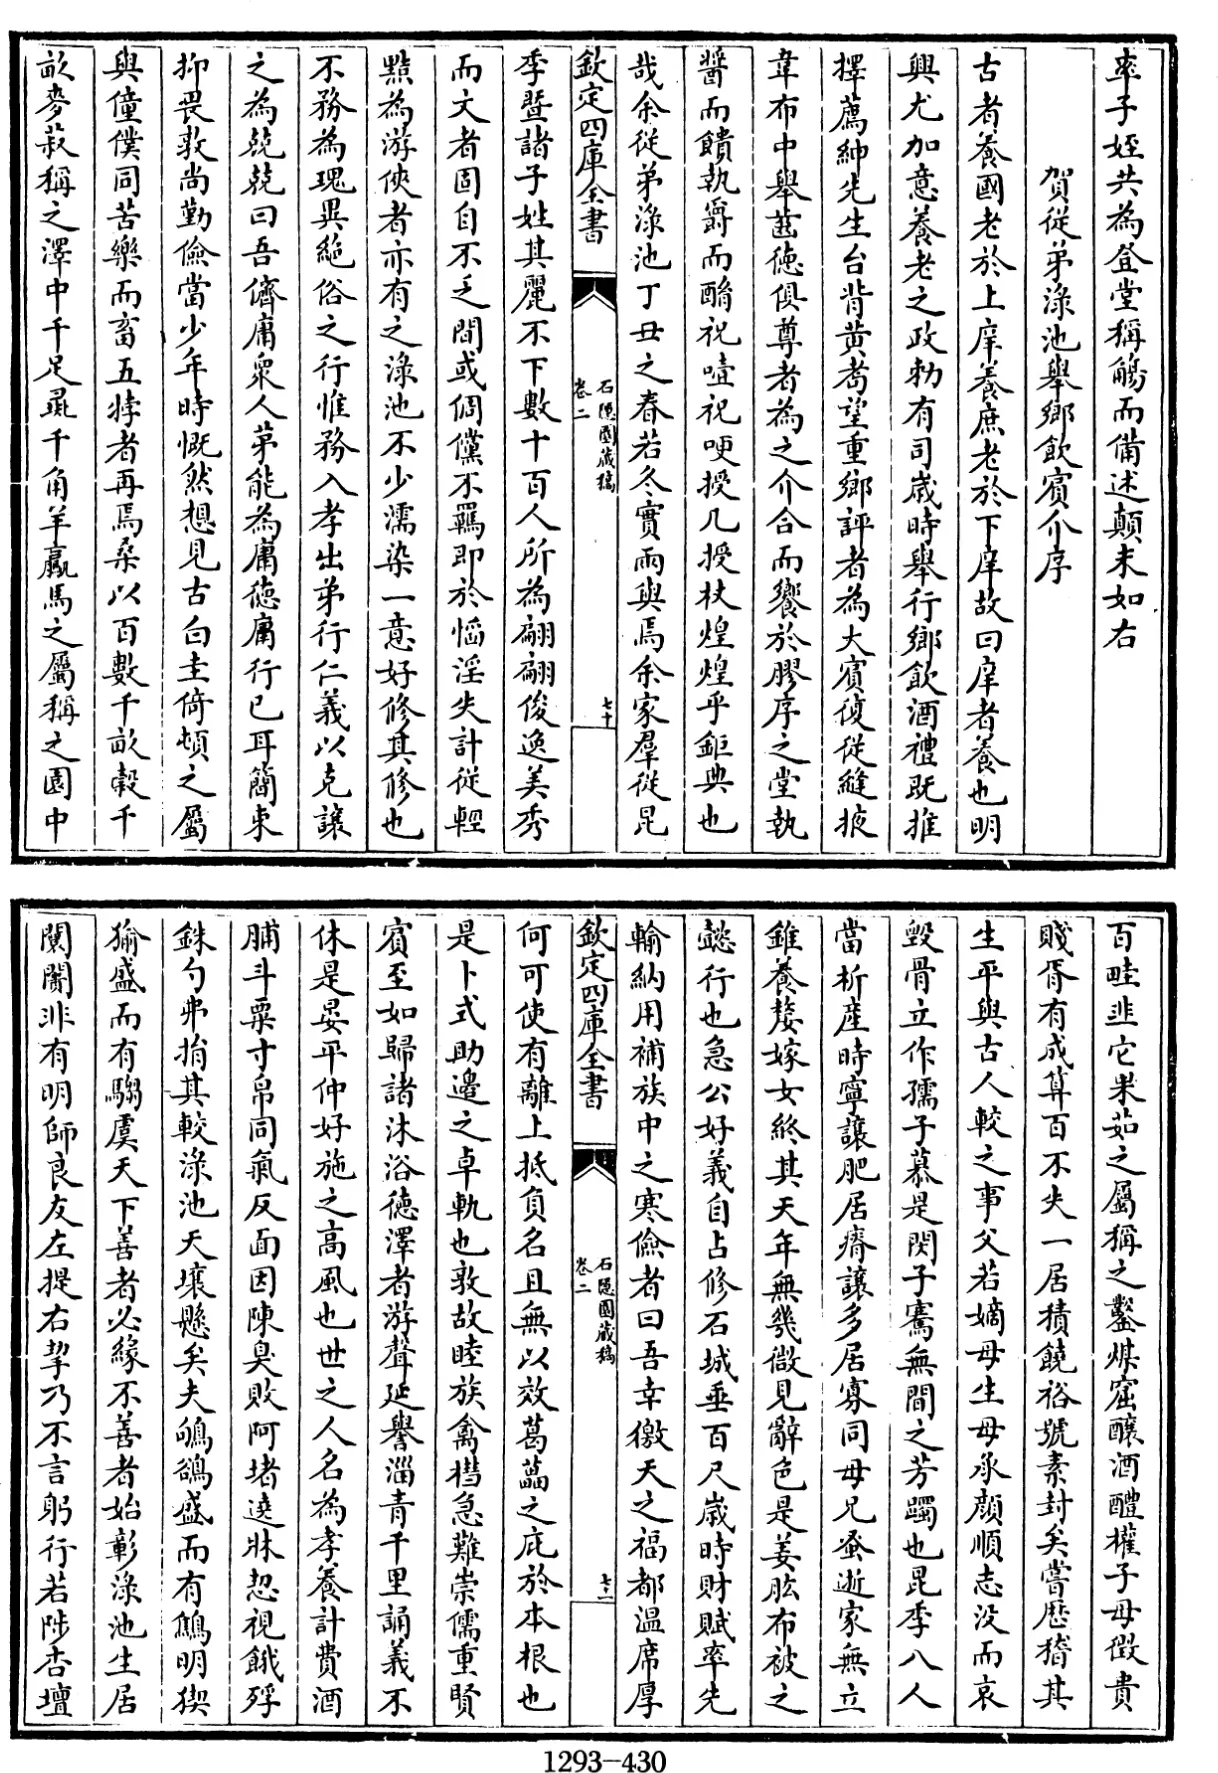 率子姪共為登堂稱觴而備述顛末如右
賀從弟淥池舉鄉飲賓介序
古者養國老於上庠養庶老於下庠故曰庠者養也明
興尤加意養老之政勅有司歳時舉行鄉飲酒禮既推
擇薦紳先生台背黄耉望重鄉評者為大賓復從縫掖
韋布中舉齒徳俱尊者為之介合而饗於膠序之堂執
醬而饋執爵而酳祝噎祝哽授几授杖煌煌乎鉅典也
哉余從弟淥池丁丑之春若冬實兩與焉余家羣從昆
欽定四庫全書
石隱園藏稿
卷二
七十
季暨諸子姓其麗不下數十百人所為翩翩俊逸美秀
而文者固自不乏間或倜儻不羈即於慆淫失計從輕
黠為游俠者亦有之淥池不少濡染一意好修其修也
不務為瑰異絶俗之行惟務入孝出弟行仁義以克讓
之為兢兢曰吾儕庸衆人苐能為庸徳庸行已耳簡束
抑畏敦尚勤儉當少年時慨然想見古白圭倚頓之屬
與僮僕同苦樂而畜五牸者再焉桑以百數千畝穀千
畝麥菽稱之澤中千足彘千角羊羸馬之屬稱之園中
百畦韭它果茹之屬稱之鑿煤窑釀酒醴權子母徴貴
賤胥有成算百不失一居積饒裕號素封矣嘗歴稽其
生平與古人較之事父若嫡母生母承顔順志沒而哀
毀骨立作孺子慕是閔子騫無間之芳躅也昆季八人
當析産時寧讓肥居瘠讓多居寡同母兄蚤逝家無立
錐養嫠嫁女終其天年無幾微見辭色是姜肱布被之
懿行也急公好義自占修石城垂百尺歳時財賦率先
輸納用補族中之寒儉者曰吾幸徼天之福都溫席厚
欽定四庫全書
石隱園藏稿
卷二
七十一
何可使有離上抵負名且無以效葛藟之庇於本根也
是卜式助邊之卓軌也敦故睦族禽犢急難崇儒重賢
賓至如歸諸沐浴德澤者游聲延譽淄青千里誦義不
休是晏平仲好施之高風也世之人名為孝養計費酒
脯斗粟寸帛同氣反面因陳臭敗阿堵遶牀恝視餓殍
銖勺弗捐其較淥池天壤懸矣夫鴝鵒盛而有鷦明猰
㺄盛而有騶虞天下善者必緣不善者始彰淥池生居
闤闠非有明師良友左提右挈乃不言躬行若陟杏壇
1293—430